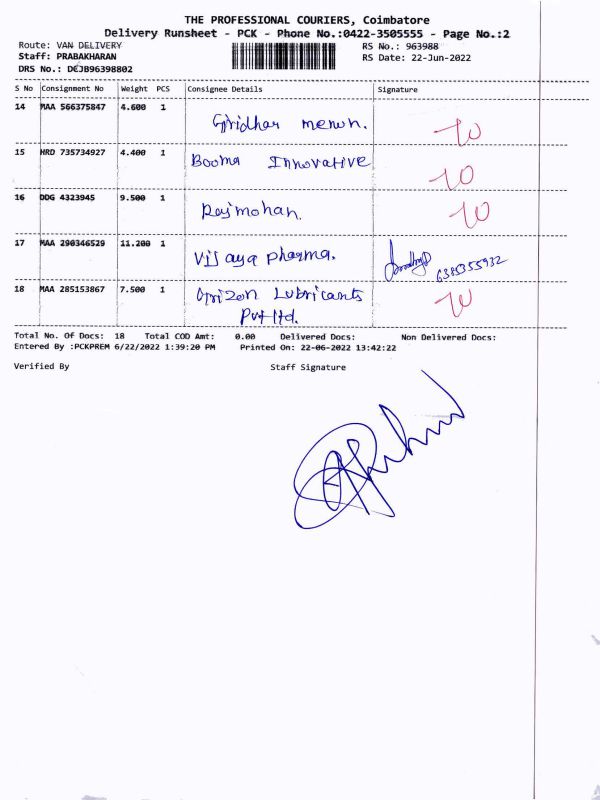 THE PROFESSIONAL COURIERS, Coimbatore
Delivery Runsheet - PCK - Phone No.:0422-3505555 - Page No.:2
Route: VAN DELIVERY RS No.: 963988
Staff: PRABAKHARAN RS Date: 22-Jun-2022
DRS No.: DCJB96398802
S No Consignment No Weight PCS Consignee Details Signature
14 MAA 566375847 4.600 1 Giridhar menon.
15 HRD 735734927 4.400 1 Booma Innovative
16 DDG 4323945 9.500 1 Rajmohan.
17 MAA 290346529 11.200 1 Vijaya pharma. 6385355932
18 MAA 285153867 7.500 1 Lubricants
Pvt ltd.
Total No. Of Docs: 18 Total COD Amt: 0.00 Delivered Docs: Non Delivered Docs:
Entered By :PCKPREM 6/22/2022 1:39:20 PM Printed On: 22-06-2022 13:42:22
Verified By Staff Signature